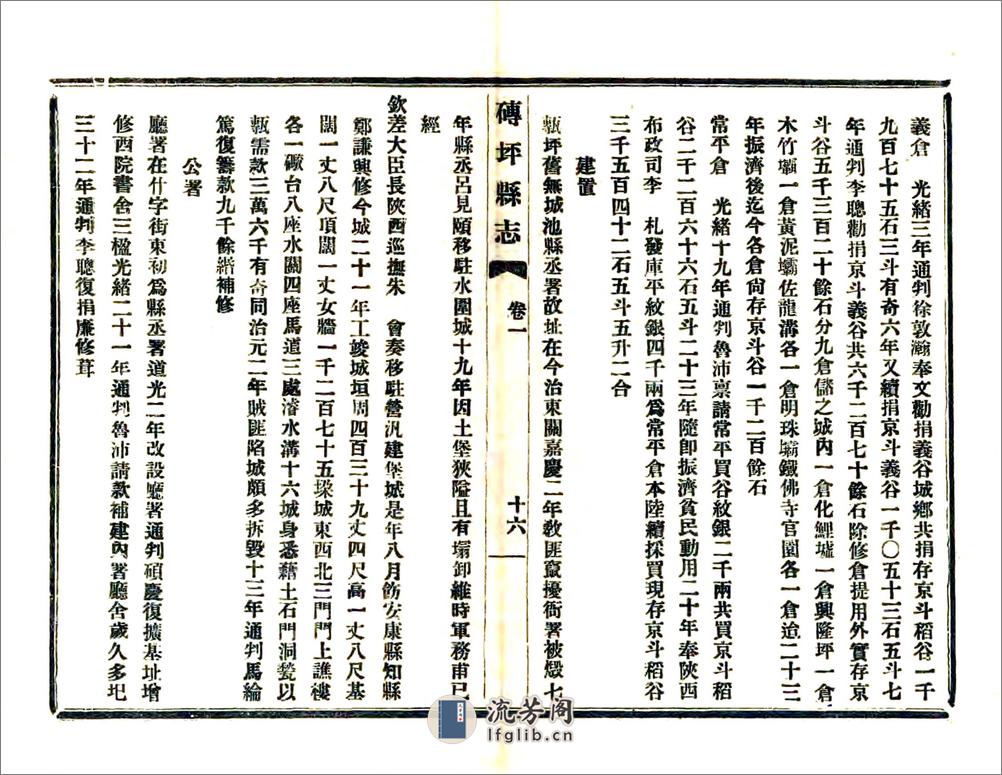 義倉　光緒三年通判徐敦瀚奉文勸捐義谷城鄉共捐存京斗稻谷一千
九百七十五石三斗有奇六年又續捐京斗義谷一千〇五十三石五斗七
年通判李聰勸捐京斗義谷共六千二百七十餘石除修倉提用外實存京
斗谷五千三百二十餘石分九倉儲之城內一倉化鯉墟一倉興隆坪一倉
木竹壩一倉黃泥壩佐龍溝各一倉明珠壩鐵佛寺官園各一倉迨二十三
年振濟後迄今各倉尙存京斗谷一千二百餘石
常平倉　光緒十九年通判魯沛禀請常平買谷紋銀二千兩共買京斗稻
谷二千二百六十六石五斗二十三年隨卽振濟貧民動用二十年奉陝西
布政司李　札發庫平紋銀四千兩爲常平倉本陸續採買現存京斗稻谷
三千五百四十二石五斗五升二合
建置
甎坪舊無城池縣丞署故址在今治東關嘉慶二年敎匪竄擾衙署被燬七
磚坪縣志
卷一
十六
年縣丞呂見頤移駐水圍城十九年因土堡狹隘且有塌卸維時軍務甫已
經
欽差大臣長陝西巡撫朱　會奏移駐營汛建堡城是年八月飭安康縣知縣
鄭謙興修今城二十一年工竣城垣周四百三十九丈四尺高一丈八尺基
闊一丈八尺頂闊一丈女牆一千二百七十五垜城東西北三門門上譙樓
各一礮台八座水關四座馬道三處濬水溝十六城身悉藉土石門洞甃以
甎需款三萬六千有奇同治元二年賊匪陷城頗多拆毀十三年通判馬綸
篤復籌款九千餘緡補修
公署
廳署在什字街東初爲縣丞署道光二年改設廳署通判碩慶復擴基址增
修西院書舍三楹光緒二十一年通判魯沛請款補建內署廳舍歲久多圯
三十二年通判李聰復捐廉修葺
流芳阁
lfglib.cn